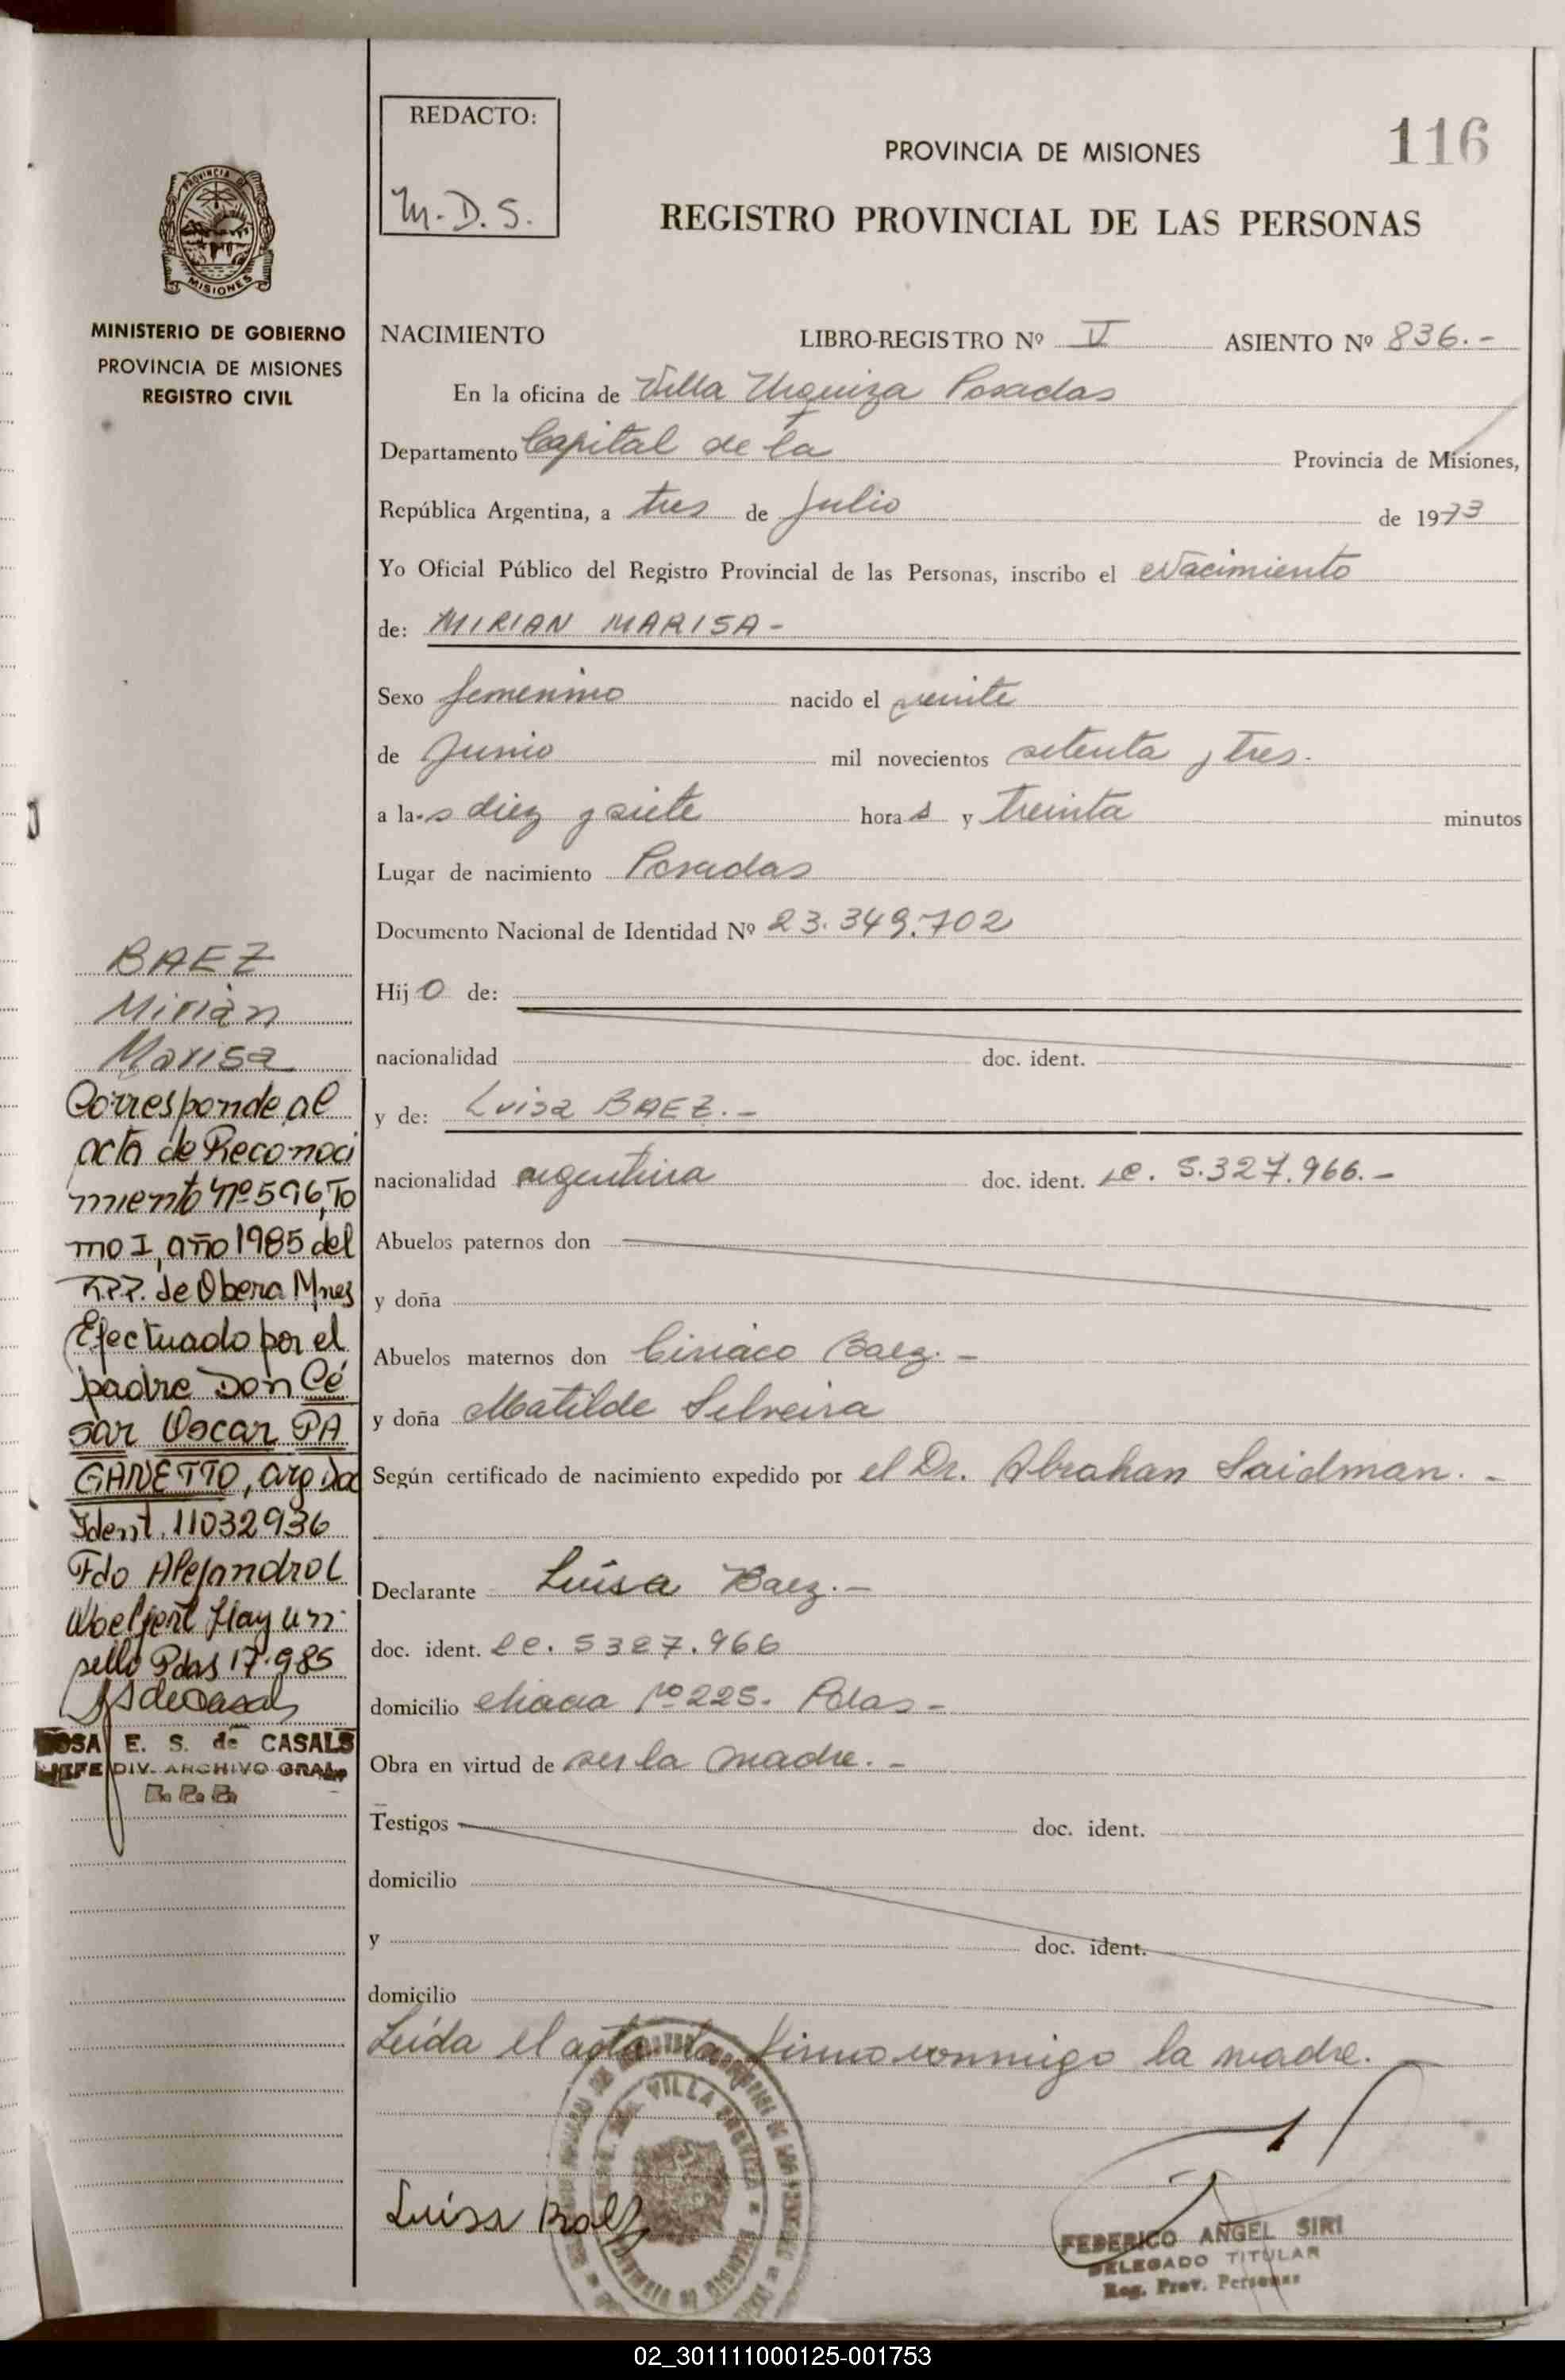 REDACTO:
M. D. S.
PROVINCIA DE MISIONES
116
REGISTRO PROVINCIAL DE LAS PERSONAS
PROVINCIA DE
MISIONES
MINISTERIO DE GOBIERNO
PROVINCIA DE MISIONES
REGISTRO CIVIL
NACIMIENTO LIBRO-REGISTRO Nº V ASIENTO Nº 836.-
En la oficina de Villa Urquiza Posadas
Departamento Capital de la Provincia de Misiones,
República Argentina, a tres de Julio de 1973
Yo Oficial Público del Registro Provincial de las Personas, inscribo el Nacimiento
de: MIRIAN MARISA-
Sexo femenino nacido el veinte
de Junio mil novecientos setenta y tres.
a la-s diez y siete hora s y treinta minutos
Lugar de nacimiento Posadas
Documento Nacional de Identidad Nº 23.349.702
Hij o de:
nacionalidad doc. ident.
y de: Luisa BAEZ.-
nacionalidad argentina doc. ident. LC. 5.327.966.-
Abuelos paternos don
y doña
Abuelos maternos don Ciriaco Baez.-
y doña Matilde Silveira
Según certificado de nacimiento expedido por el Dr. Abrahan Saidman.-
Declarante Luisa Baez.-
doc. ident. LC. 5327.966
domicilio Nº 225. Pdas-
Obra en virtud de ser la madre.-
Testigos doc. ident.
domicilio
y doc. ident.
domicilio
Leída el acta la firma conmigo la madre.-
Luisa Baez
VILLA URQUIZA
FEDERICO ANGEL SIRI
DELEGADO TITULAR
Reg. Prov. Personas
BAEZ
Mirian
Marisa
Corresponde al
acta de Reconoci
miento Nº 596, To
mo I, año 1985 del
R.P.P. de Obera Mnes
Efectuado por el
padre Don Cé
sar Oscar PA
GANETTO, arg doc
Ident. 11032936
Fdo Alejandro L
Hay un
sello Pdas 17.9.85
ROSA E. S. de CASALS
JEFE DIV. ARCHIVO GRAL
R.P.P.
02_301111000125-001753